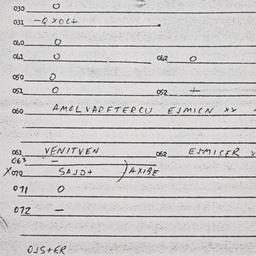 030 O
031 -QXOC+
040 O
041 O 042 O
050 O
051 O 052 +
060 AMGLVADFTERCU ESMICN XX
061 VENITVEN 062 ESMICER
063 -
X070 SASD+ )AXIBE
071 O
072 -
OJS+ER